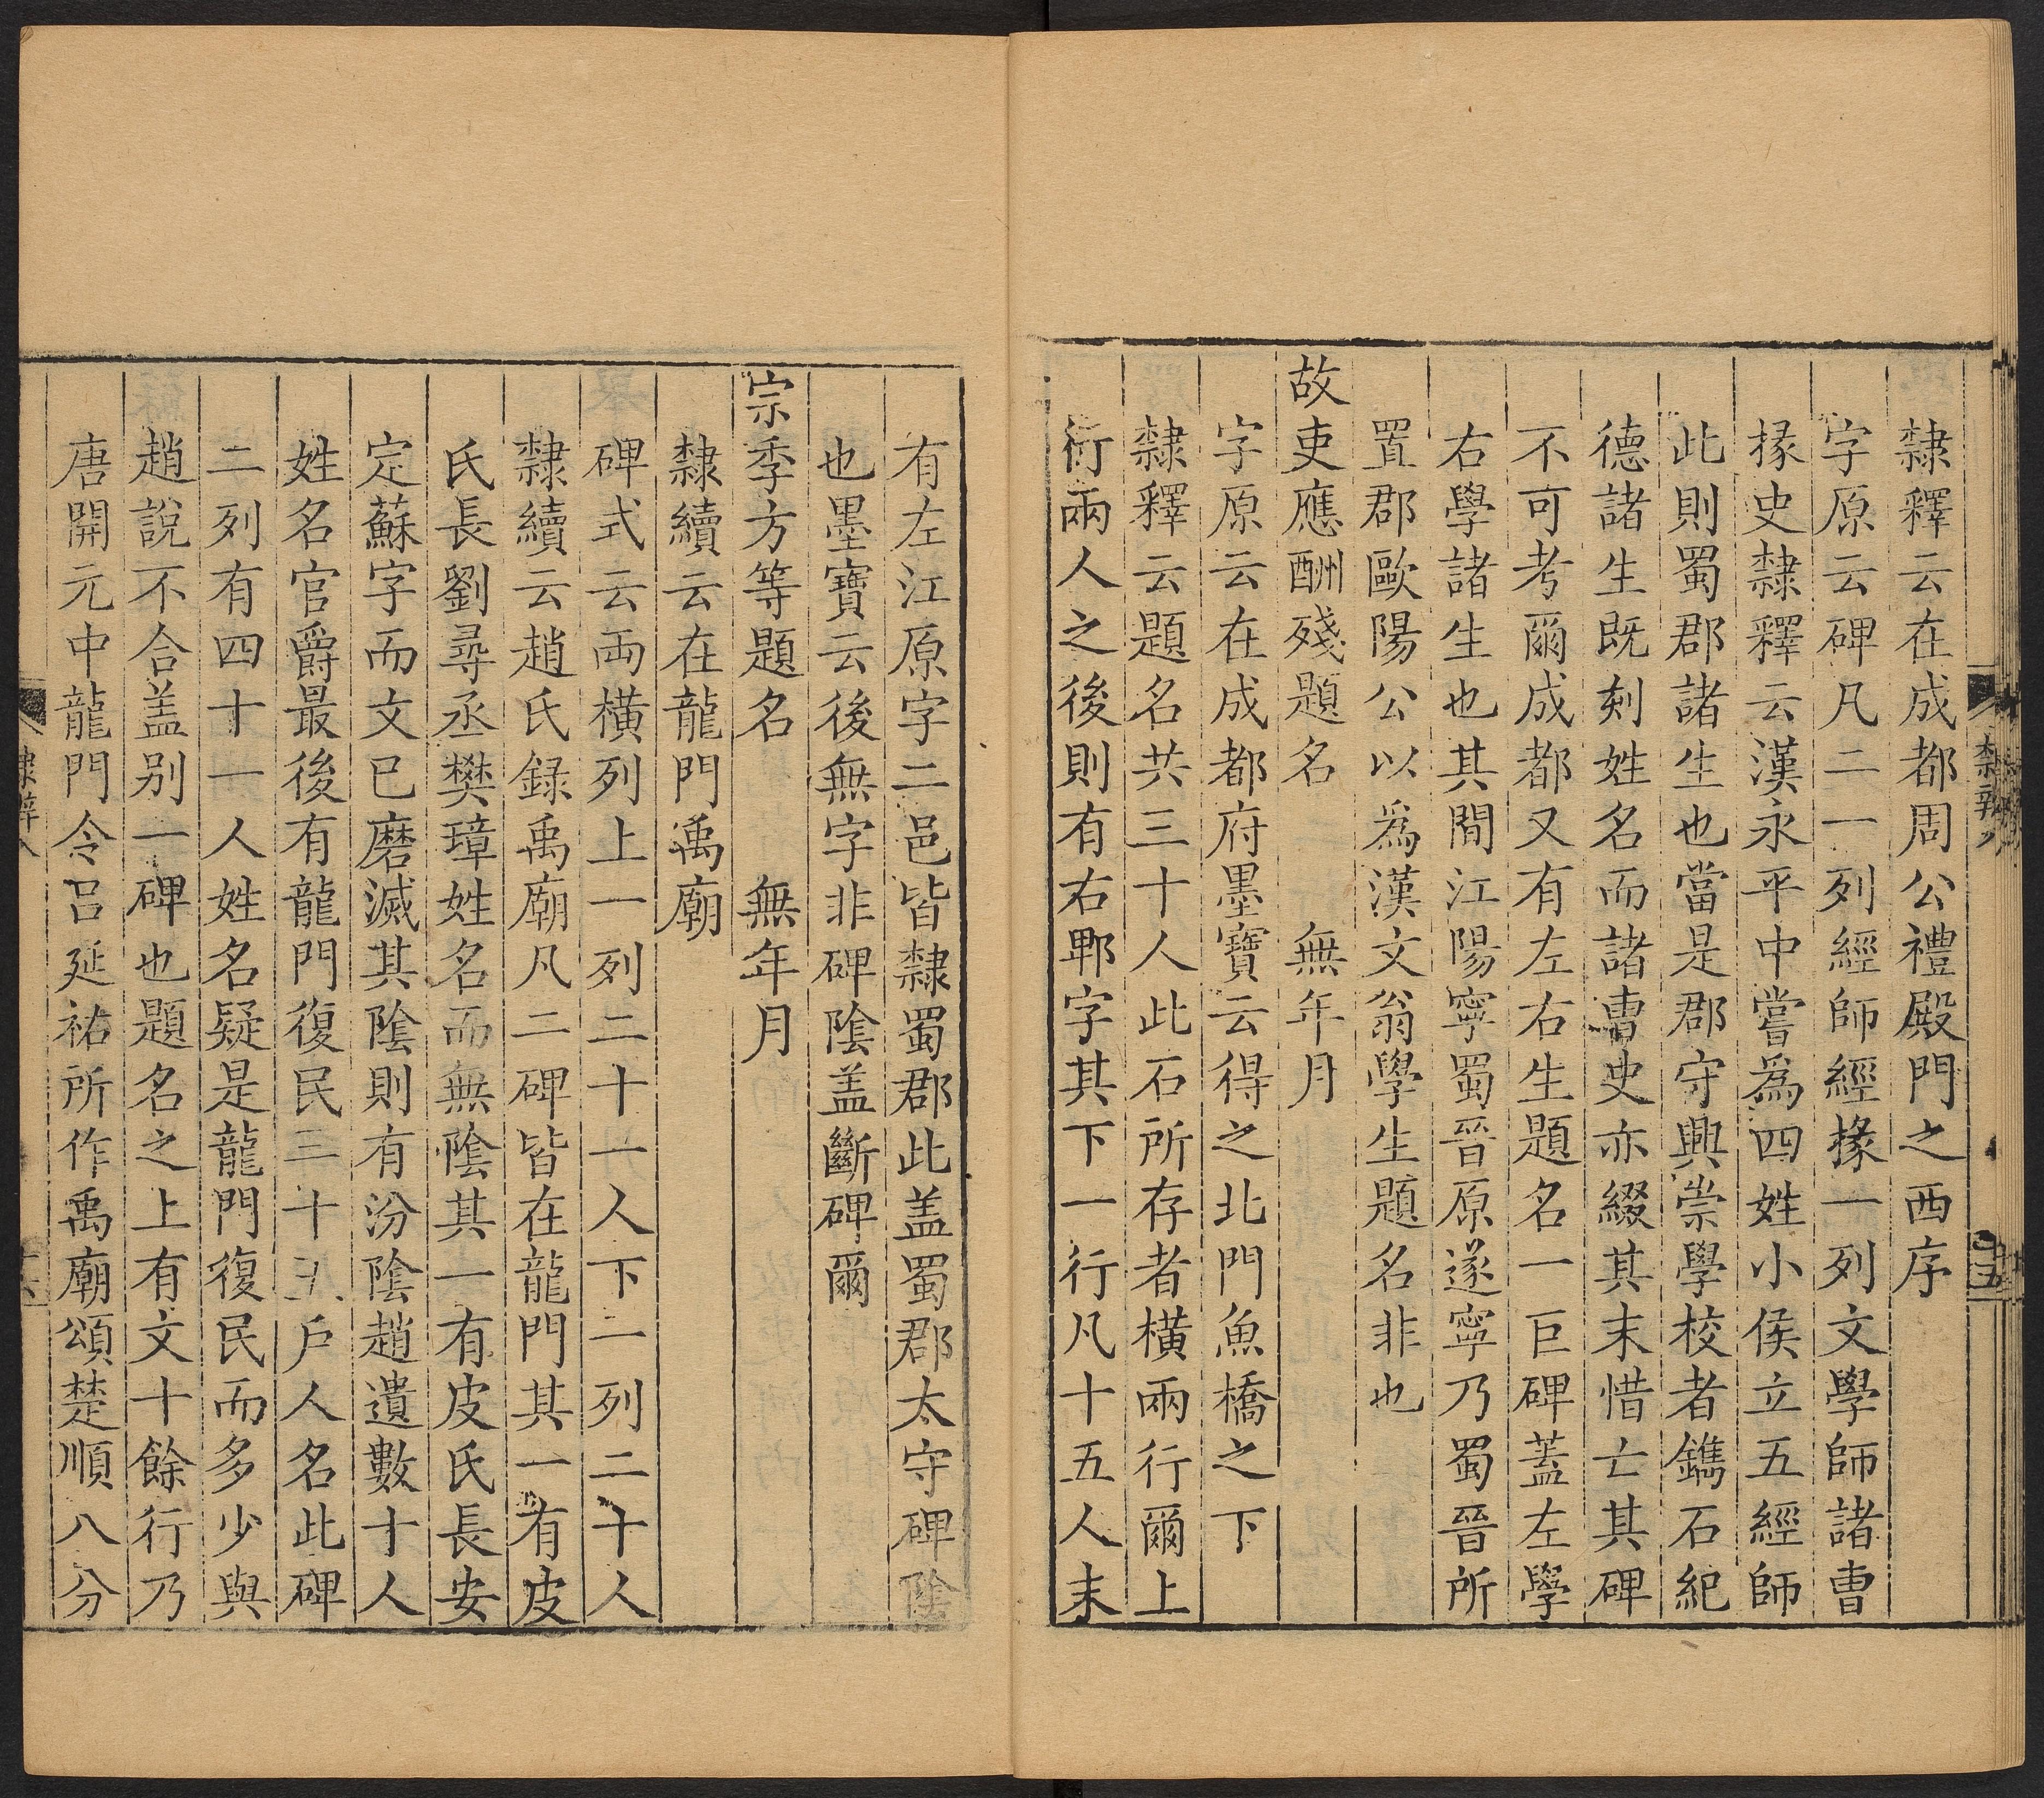 隸釋云在成都周公禮殿門之西序
字原云碑凡二一列經師經掾一列文學師諸曹
掾史隸釋云漢永平中嘗爲四姓小侯立五經師
此則蜀郡諸生也當是郡守興崇學校者鐫石紀
德諸生既刻姓名而諸曹史亦綴其末惜亡其碑
不可考爾成都又有左右生題名一巨碑蓋左學
右學諸生也其閒江陽寧蜀晉原遂寧乃蜀晉所
置郡歐陽公以爲漢文翁學生題名非也
故吏應酬殘題名 無年月
字原云在成都府墨寶云得之北門魚橋之下
隸釋云題名共三十人此石所存者橫兩行爾上
行兩人之後則有右鄲字其下一行凡十五人末
有左江原字二邑皆隸蜀郡此盖蜀郡太守碑陰
也墨寶云後無字非碑陰盖斷碑爾
宗季方等題名 無年月
隸續云在龍門禹廟
碑式云兩橫列上一列二十一人下一列二十人
隸續云趙氏録禹廟凡二碑皆在龍門其一有皮
氏長劉尋丞樊璋姓名而無陰其一有皮氏長安
定蘇字而文已磨滅其陰則有汾陰趙遺數十人
姓名官爵最後有龍門復民三十 戶人名此碑
二列有四十一人姓名疑是龍門復民而多少與
趙說不合盖别一碑也題名之上有文十餘行乃
唐開元中龍門令呂延祐所作禹廟頌楚順八分